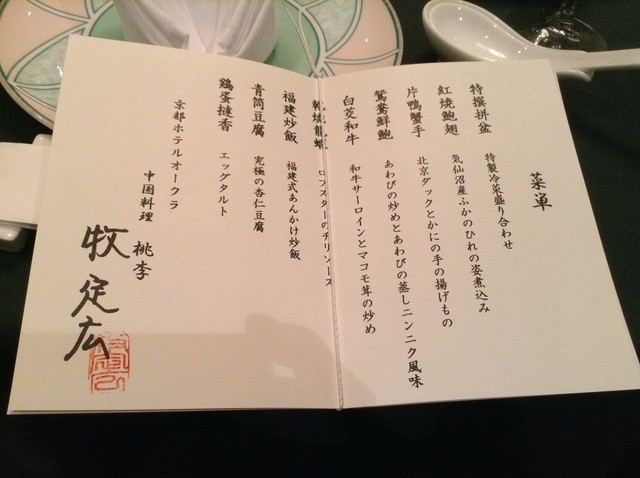 菜単
特撰拼盆 特製冷菜盛り合わせ
紅焼鮑翅 気仙沼産ふかのひれの姿煮込み
片鴨蟹手 北京ダックとかにの手の揚げもの
鴛鴦鮮鮑 あわびの炒めとあわびの蒸しニンニク風味
白茭和牛 和牛サーロインとマコモ茸の炒め
ロブスターのチリソース
福建炒飯 福建式あんかけ炒飯
杏筒豆腐 究極の杏仁豆腐
鶏蛋撻香 エッグタルト
京都ホテルオークラ
中国料理 桃李
牧定広